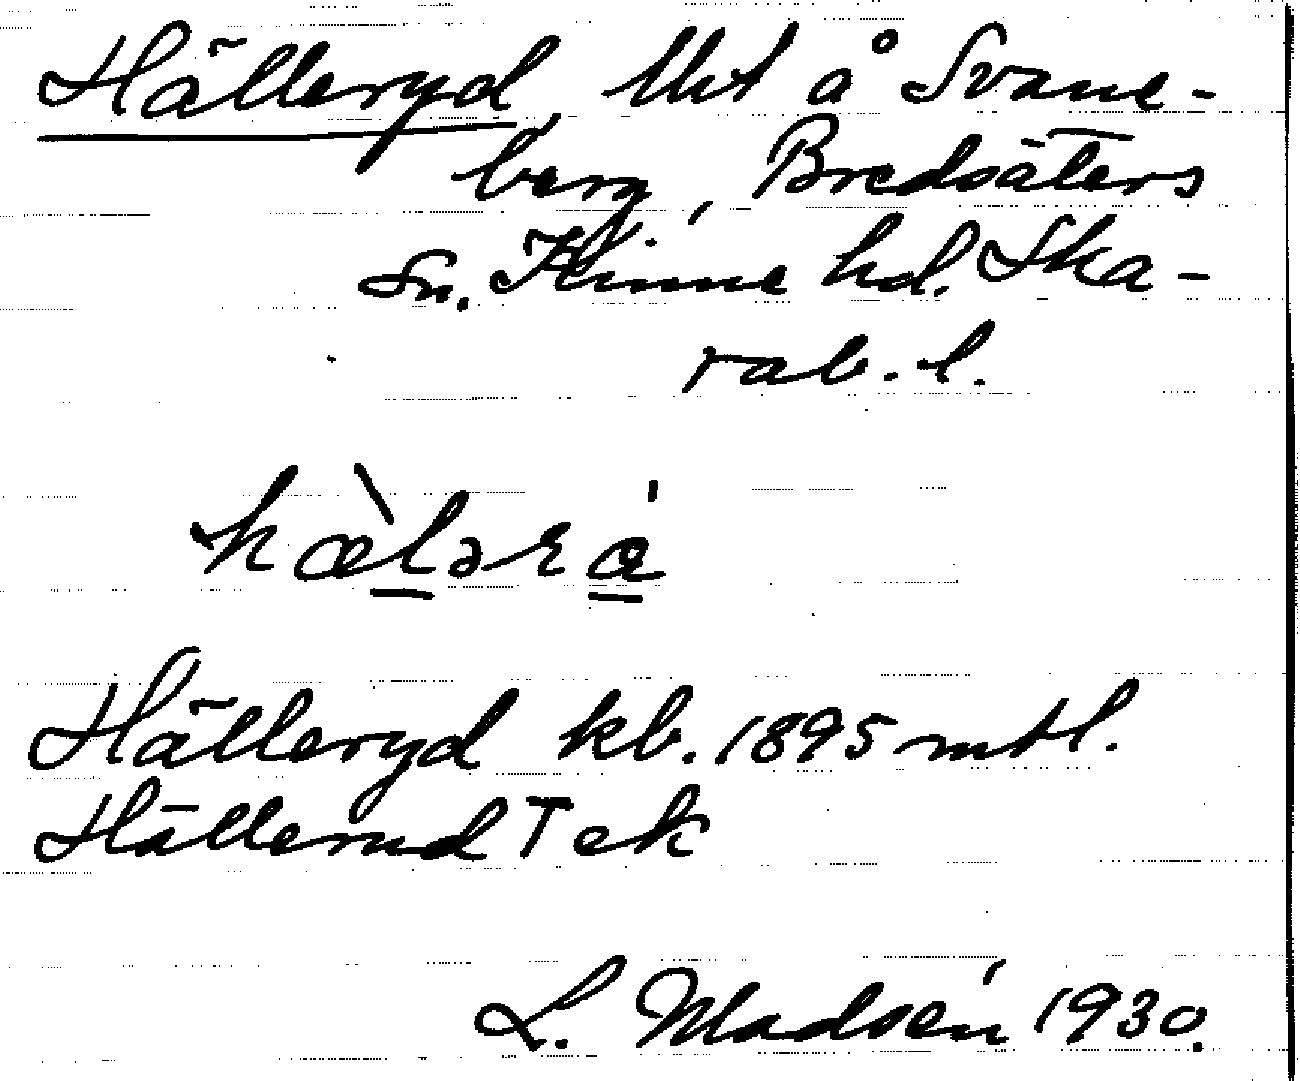 Hälleryd, tht å Svane-
berg, Bredsäters
sn. Kinne hd. Ska-
rab. l.
Hälleryd kb. 1895 mtl.
Hällerud T ek
L. Madsén 1930.